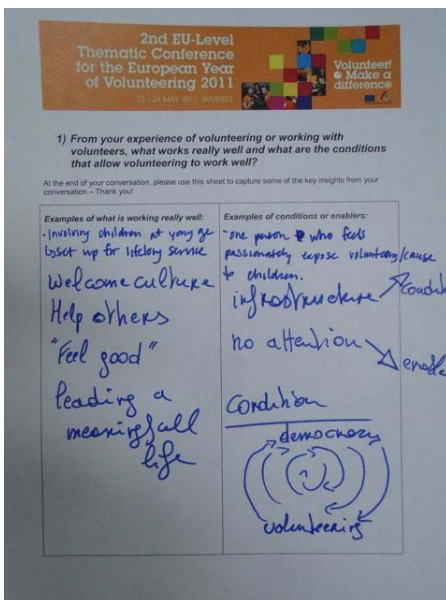 2nd EU-Level
Thematic Conference
for the European Year
of Volunteering 2011
23 - 24 MAY 2011, BRUSSELS
Volunteer!
Make a
difference
1) From your experience of volunteering or working with
volunteers, what works really well and what are the conditions
that allow volunteering to work well?
At the end of your conversation, please use this sheet to capture some of the key insights from your
conversation – Thank you!
Examples of what is working really well:
- involving children at young age
set up for lifelong service
Welcome culture
Help others
"Feel good"
leading a
meaningfull
life
Examples of conditions or enablers:
- one person who feels
passionately expose volunteering/cause
to children.
infrastructure
no attention
Condition
democracy
volunteering